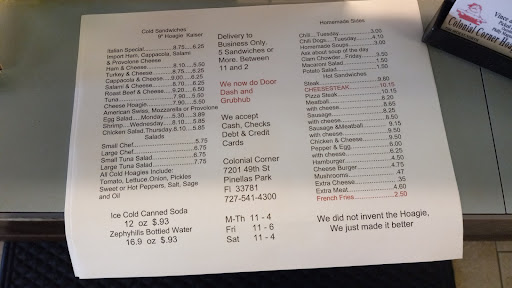 Cold Sandwiches
9" Hoagie Kaiser
Italian Special..............8.75....6.25
Import Ham, Cappacola, Salami
& Provolone Cheese
Ham & Cheese............8.10....5.50
Turkey & Cheese........8.75....6.25
Cappacola & Cheese...9.00....6.25
Salami & Cheese.........8.70....6.25
Roast Beef & Cheese...9.20....6.50
Tuna..........................7.90....5.50
Cheese Hoagie..............7.90....5.50
American, Swiss, Mozzarella or Provolone
Egg Salad.....Monday.....5.30...3.89
Shrimp.....Wednesday....8.10....5.85
Chicken Salad.Thursday.8.10...5.85
Salads
Small Chef.........................5.75
Large Chef.........................7.75
Small Tuna Salad...............5.75
Large Tuna Salad................7.75
All Cold Hoagies Include:
Tomato, Lettuce, Onion, Pickles
Sweet or Hot Peppers, Salt, Sage
and Oil
Ice Cold Canned Soda
12 oz $.93
Zephyhills Bottled Water
16.9 oz $.93
Delivery to
Business Only,
5 Sandwiches or
More. Between
11 and 2
We now do Door
Dash and
Grubhub
We accept
Cash, Checks
Debt & Credit
Cards
Colonial Corner
7201 49th St
Pinellas Park
Fl 33781
727-541-4300
M-Th 11 - 4
Fri 11 - 6
Sat 11 - 4
Homemade Sides
Chili....Tuesday....................3.00
Chili Dogs....Tuesday..........4.50
Homemade Soups................3.00
Ask about soup of the day
Clam Chowder...Friday........
Macaroni Salad....................1.50
Potato Salad
Hot Sandwiches
Steak.................................9.60
CHEESESTEAK................10.15
Pizza Steak........................10.15
Meatball.............................8.20
with cheese........................8.65
Sausage.............................8.25
with cheese........................8.50
Sausage &Meatball
with cheese
Chicken.............................9.15
with cheese........................9.50
Pepper & Egg.....................6.00
with cheese........................6.50
Hamburger.........................4.50
Cheese Burger....................4.75
Mushrooms.........................47
Extra Cheese.......................35
Extra Meat..........................4.60
French Fries.......................2.50
We did not invent the Hoagie,
We just made it better
Colonial Corner